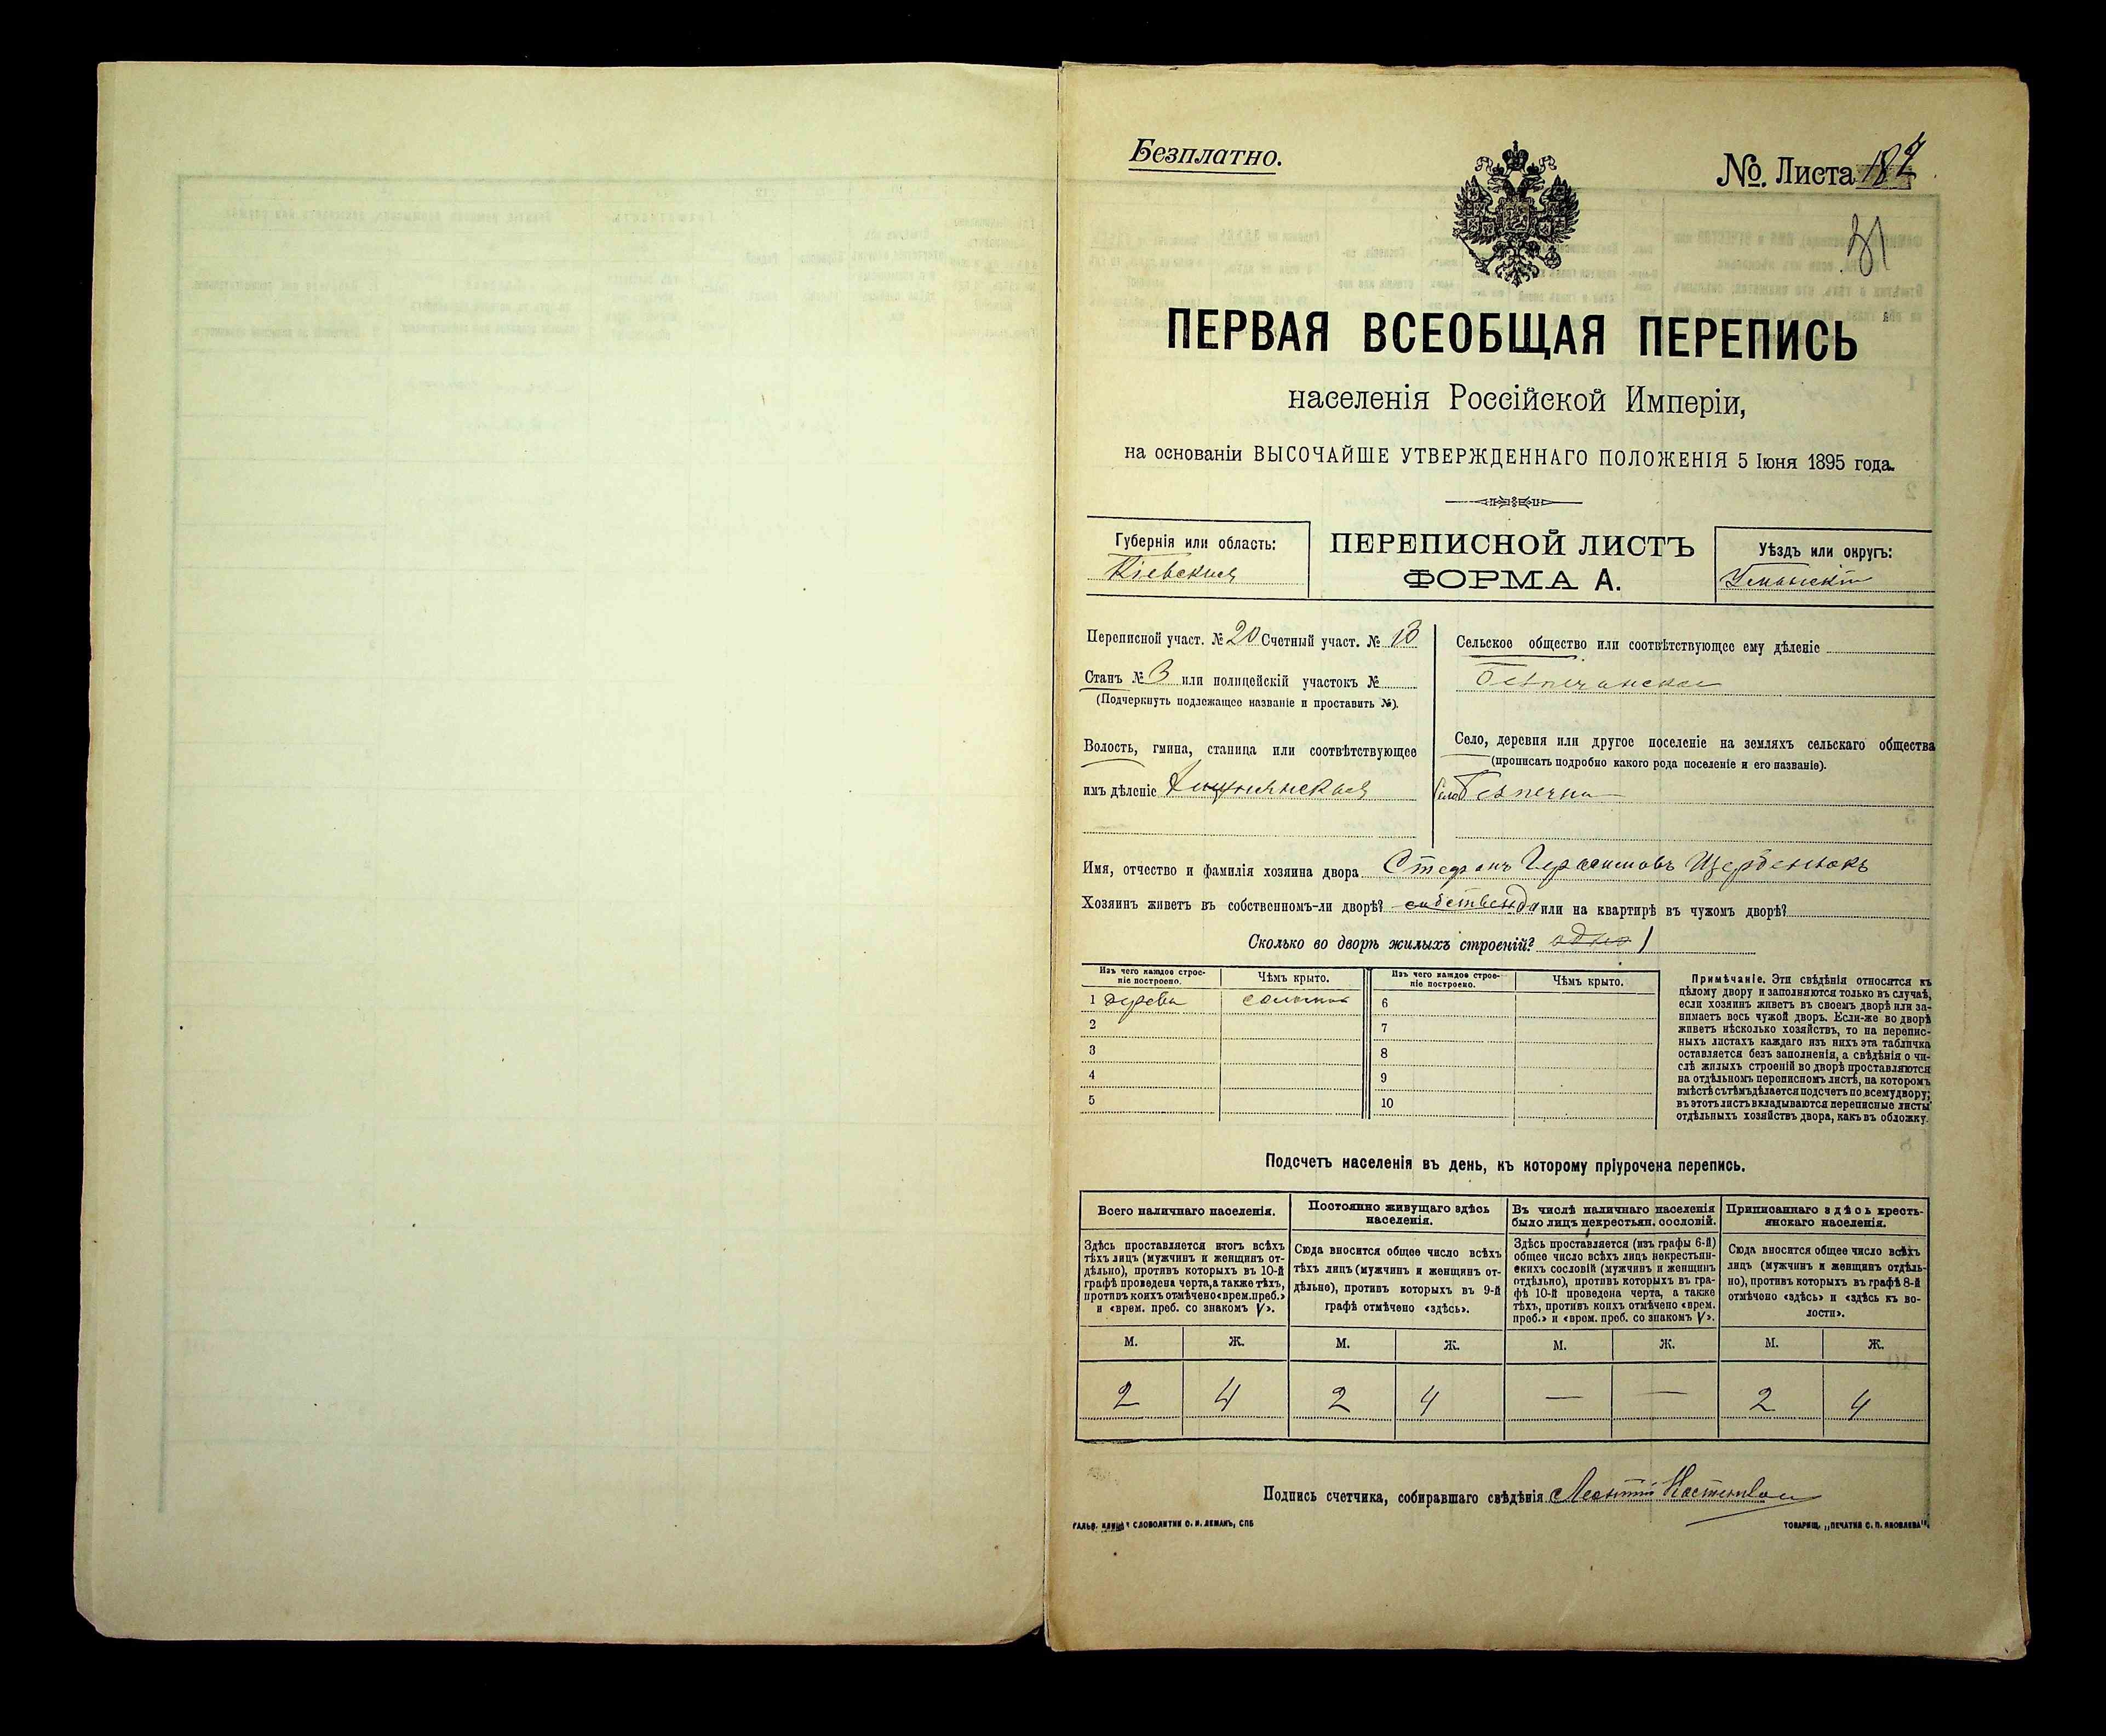 Безплатно.
№. Листа 184
ПЕРВАЯ ВСЕОБЩАЯ ПЕРЕПИСЬ
населенія Россійской Имперіи,
на основаніи ВЫСОЧАЙШЕ УТВЕРЖДЕННАГО ПОЛОЖЕНІЯ 5 Іюня 1895 года.
Губернія или область:
Кіевская
ПЕРЕПИСНОЙ ЛИСТЪ
ФОРМА А.
Уѣздъ или округъ:
Уманскій
Переписной участ. № 20 Счетный участ. № 13
Станъ № 3 или полицейскій участокъ №
(Подчеркнуть подлежащее названіе и проставить №).
Волость, гмина, станица или соотвѣтствующее
имъ дѣленіе
Сельское общество или соотвѣтствующее ему дѣленіе
Безпечанское
Село, деревня или другое поселеніе на земляхъ сельскаго общества
(прописать подробно какого рода поселеніе и его названіе).
Село Безпечна
Имя, отчество и фамилія хозяина двора Стефанъ Герасимовъ Щербенюкъ
Хозяинъ живетъ въ собственномъ-ли дворѣ? да или на квартирѣ въ чужомъ дворѣ?
Сколько во дворѣ жилыхъ строеній? одно 1
Изъ чего каждое строе-
ніе построено.
Чѣмъ крыто.
Изъ чего каждое строе-
ніе построено.
Чѣмъ крыто.
1 дерева соломой 6
2 7
3 8
4 9
5 10
Примѣчаніе. Эти свѣдѣнія относятся къ
цѣлому двору и заполняются только въ случаѣ,
если хозяинъ живетъ въ своемъ дворѣ или за-
нимаетъ весь чужой дворъ. Если-же во дворѣ
живетъ нѣсколько хозяйствъ, то на перепис-
ныхъ листахъ каждаго изъ нихъ эта табличка
оставляется безъ заполненія, а свѣдѣнія о чи-
слѣ жилыхъ строеній во дворѣ проставляются
на отдѣльномъ переписномъ листѣ, на которомъ
вмѣстѣ съ тѣмъ дѣлается подсчетъ по всему двору;
въ этотъ листъ вкладываются переписные листы
отдѣльныхъ хозяйствъ двора, какъ въ обложку.
Подсчетъ населенія въ день, къ которому пріурочена перепись.
Всего наличнаго населенія.
Здѣсь проставляется итогъ всѣхъ
тѣхъ лицъ (мужчинъ и женщинъ от-
дѣльно), противъ которыхъ въ 10-й
графѣ проведена черта, а также тѣхъ,
противъ коихъ отмѣчено «врем. преб.»
и «врем. преб. со знакомъ V».
Постоянно живущаго здѣсь
населенія.
Сюда вносится общее число всѣхъ
тѣхъ лицъ (мужчинъ и женщинъ от-
дѣльно), противъ которыхъ въ 9-й
графѣ отмѣчено «здѣсь».
Въ числѣ наличнаго населенія
было лицъ некрестьян. сословій.
Здѣсь проставляется (изъ графы 6-й)
общее число всѣхъ лицъ некрестьян-
скихъ сословій (мужчинъ и женщинъ
отдѣльно), противъ которыхъ въ гра-
фѣ 10-й проведена черта, а также
тѣхъ, противъ коихъ отмѣчено «врем.
преб.» и «врем. преб. со знакомъ V».
Приписаннаго здѣсь кресть-
янскаго населенія.
Сюда вносится общее число всѣхъ
лицъ (мужчинъ и женщинъ отдѣль-
но), противъ которыхъ въ графѣ 8-й
отмѣчено «здѣсь» и «здѣсь къ во-
лости».
М. Ж. М. Ж. М. Ж. М. Ж.
2 4 2 4 — — 2 4
Подпись счетчика, собиравшаго свѣдѣнія Леонтій
СЛОВОЛИТНИ О. И. ЛЕМАНЪ, СПБ
ТОВАРИЩ. „ПЕЧАТНЯ С. П. ЯКОВЛЕВА".